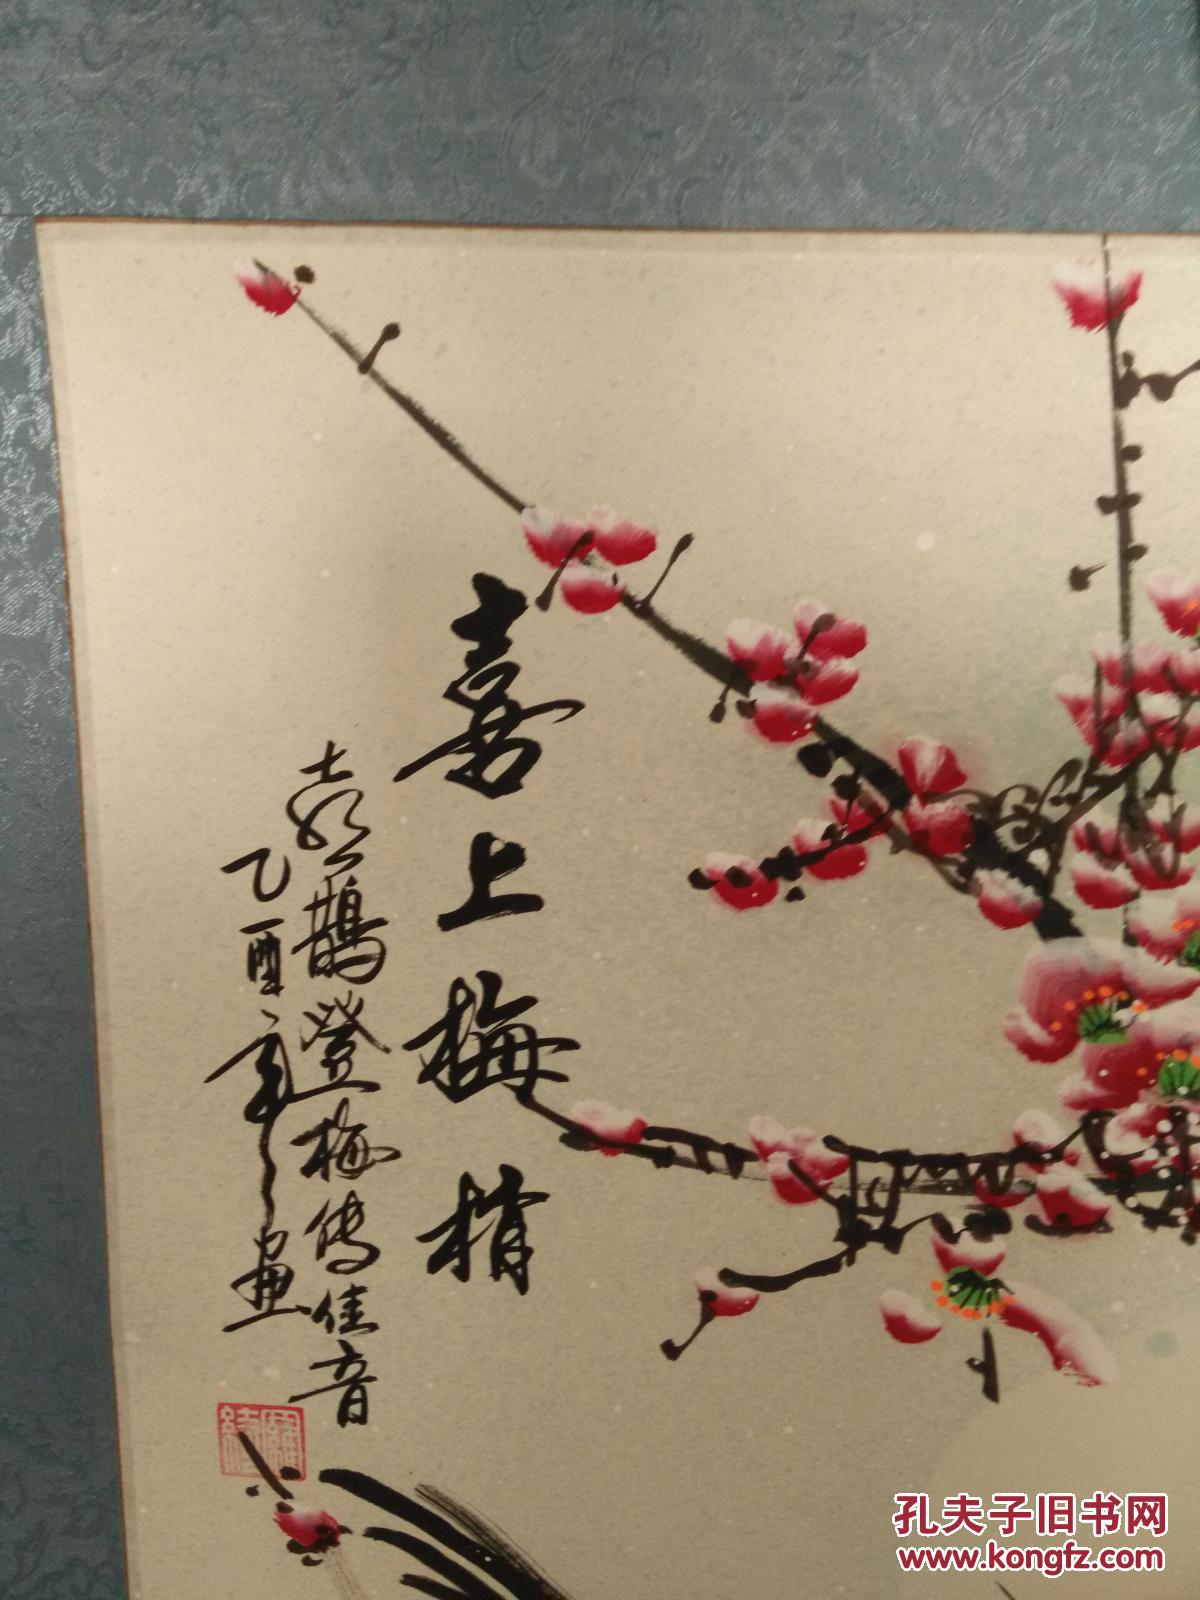 喜上梅梢
喜鹊登梅传佳音
乙酉年画
孔夫子旧书网
www.kongfz.com